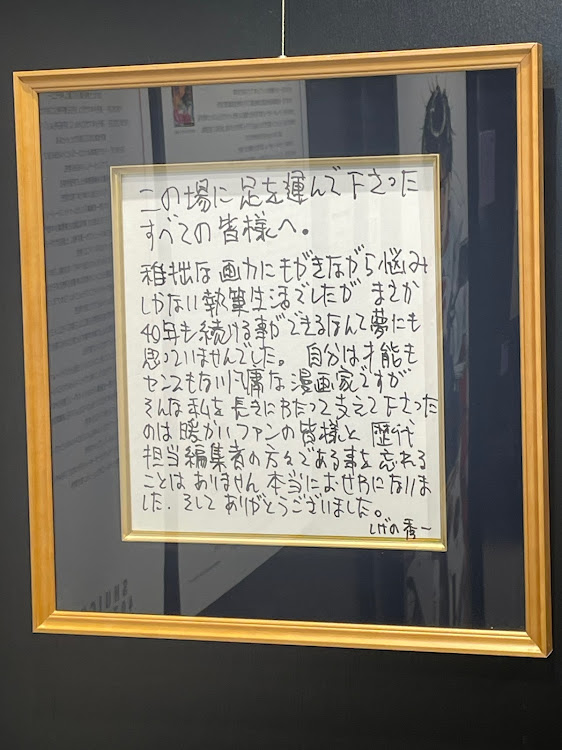 この場に足を運んで下さった
すべての皆様へ。
稚拙な画力にもがきながら悩み
しかない執筆生活でしたが まさか
40年も続ける事ができるなんて夢にも
思っていませんでした。 自分は才能も
センスもない凡庸な漫画家ですが
そんな私を長きにわたって支えて下さった
のは暖かいファンの皆様と 歴代
担当編集者の方々である事を忘れる
ことはありません 本当におせわになりま
した. そして ありがとうございました。
しげの秀一